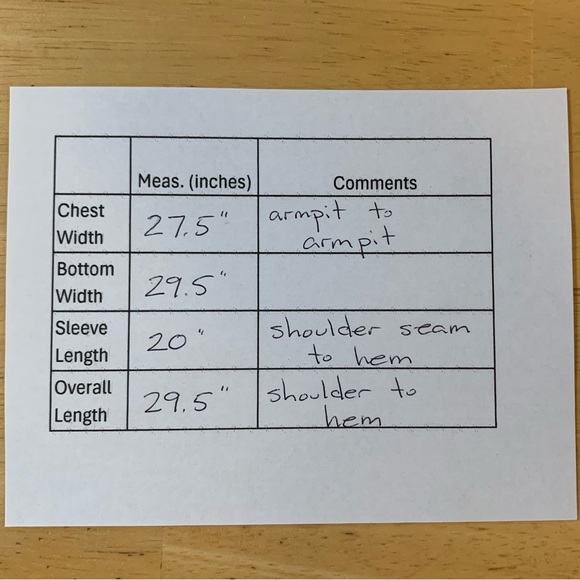 Meas. (inches) Comments
Chest Width 27.5" armpit to armpit
Bottom Width 29.5"
Sleeve Length 20" shoulder seam to hem
Overall Length 29.5" shoulder to hem